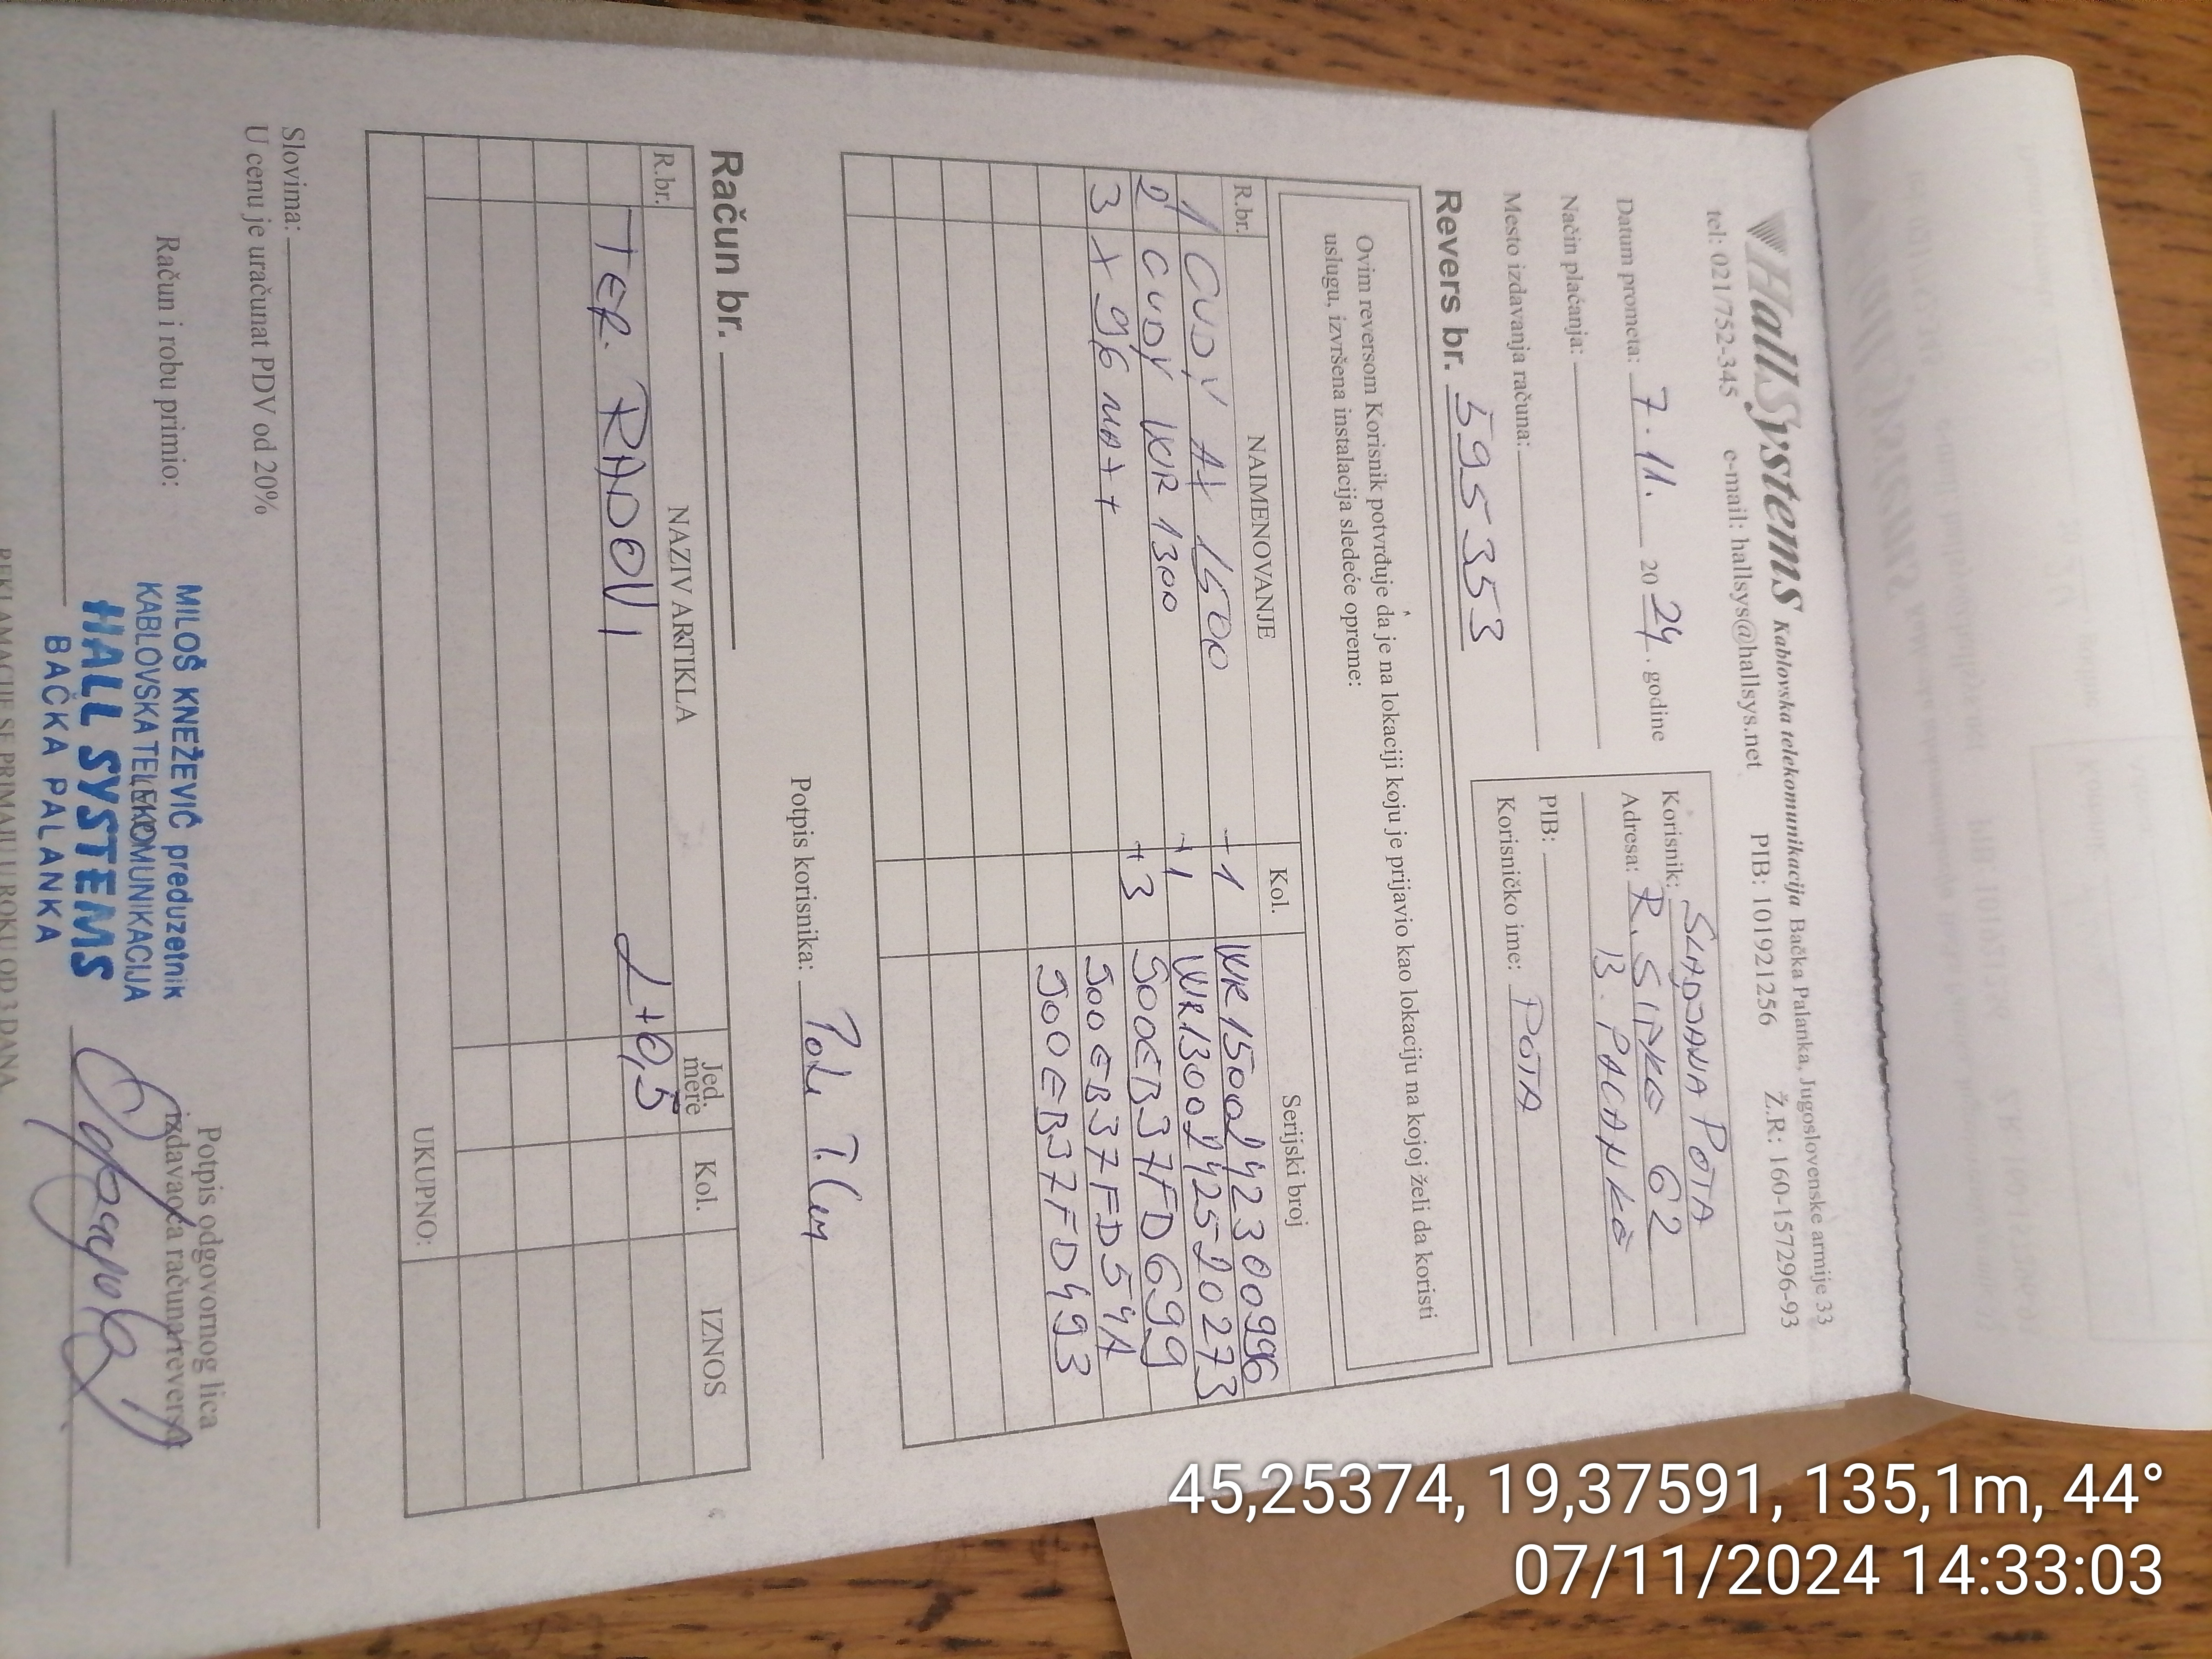 HallSystems Kablovska telekomunikacija Bačka Palanka, Jugoslovenske armije 33
tel: 021/752-345 e-mail: hallsys@hallsys.net PIB: 101921256 Ž.R: 160-157296-93
Datum prometa: 7.11. 2024. godine
Način plaćanja:
Mesto izdavanja računa:
Korisnik: SLADJANA POTA
Adresa: R. SIPKE 62
B. PALANKA
PIB:
Korisničko ime: POTA
Revers br. 595353
Ovim reversom Korisnik potvrđuje da je na lokaciji koju je prijavio kao lokaciju na kojoj želi da koristi
uslugu, izvršena instalacija sledeće opreme:
R.br. NAIMENOVANJE Kol. Serijski broj
1 CUDY AX 1500 +1 WR1500242300996
2 CUDY WR 1300 +1 WR1300242520273
3 X 96 MAX+ +3 500EB37FD699
500EB37FD54A
500EB37FD493
Potpis korisnika:
Račun br.
R.br. NAZIV ARTIKLA Jed. mere Kol. IZNOS
TER. RADOVI L+0,5
UKUPNO:
Slovima:
U cenu je uračunat PDV od 20%
Račun i robu primio:
Potpis odgovornog lica
izdavaoca računa/reversa
MILOŠ KNEŽEVIĆ preduzetnik
KABLOVSKA TELEKOMUNIKACIJA
HALL SYSTEMS
BAČKA PALANKA
REKLAMACIJE SE PRIMAJU U ROKU OD 3 DANA
45,25374, 19,37591, 135,1m, 44°
07/11/2024 14:33:03